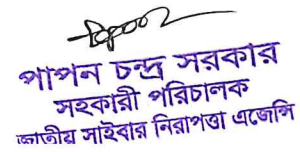 পাপন চন্দ্র সরকার
সহকারী পরিচালক
জাতীয় সাইবার নিরাপত্তা এজেন্সি